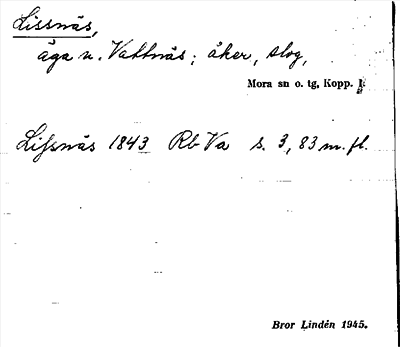 Lissnäs,
äga u. Vattnäs; åker, slog,
Mora sn o. tg, Kopp. l.
Lissnäs 1843 Rb Va s. 3, 83 m. fl.
Bror Lindén 1945.